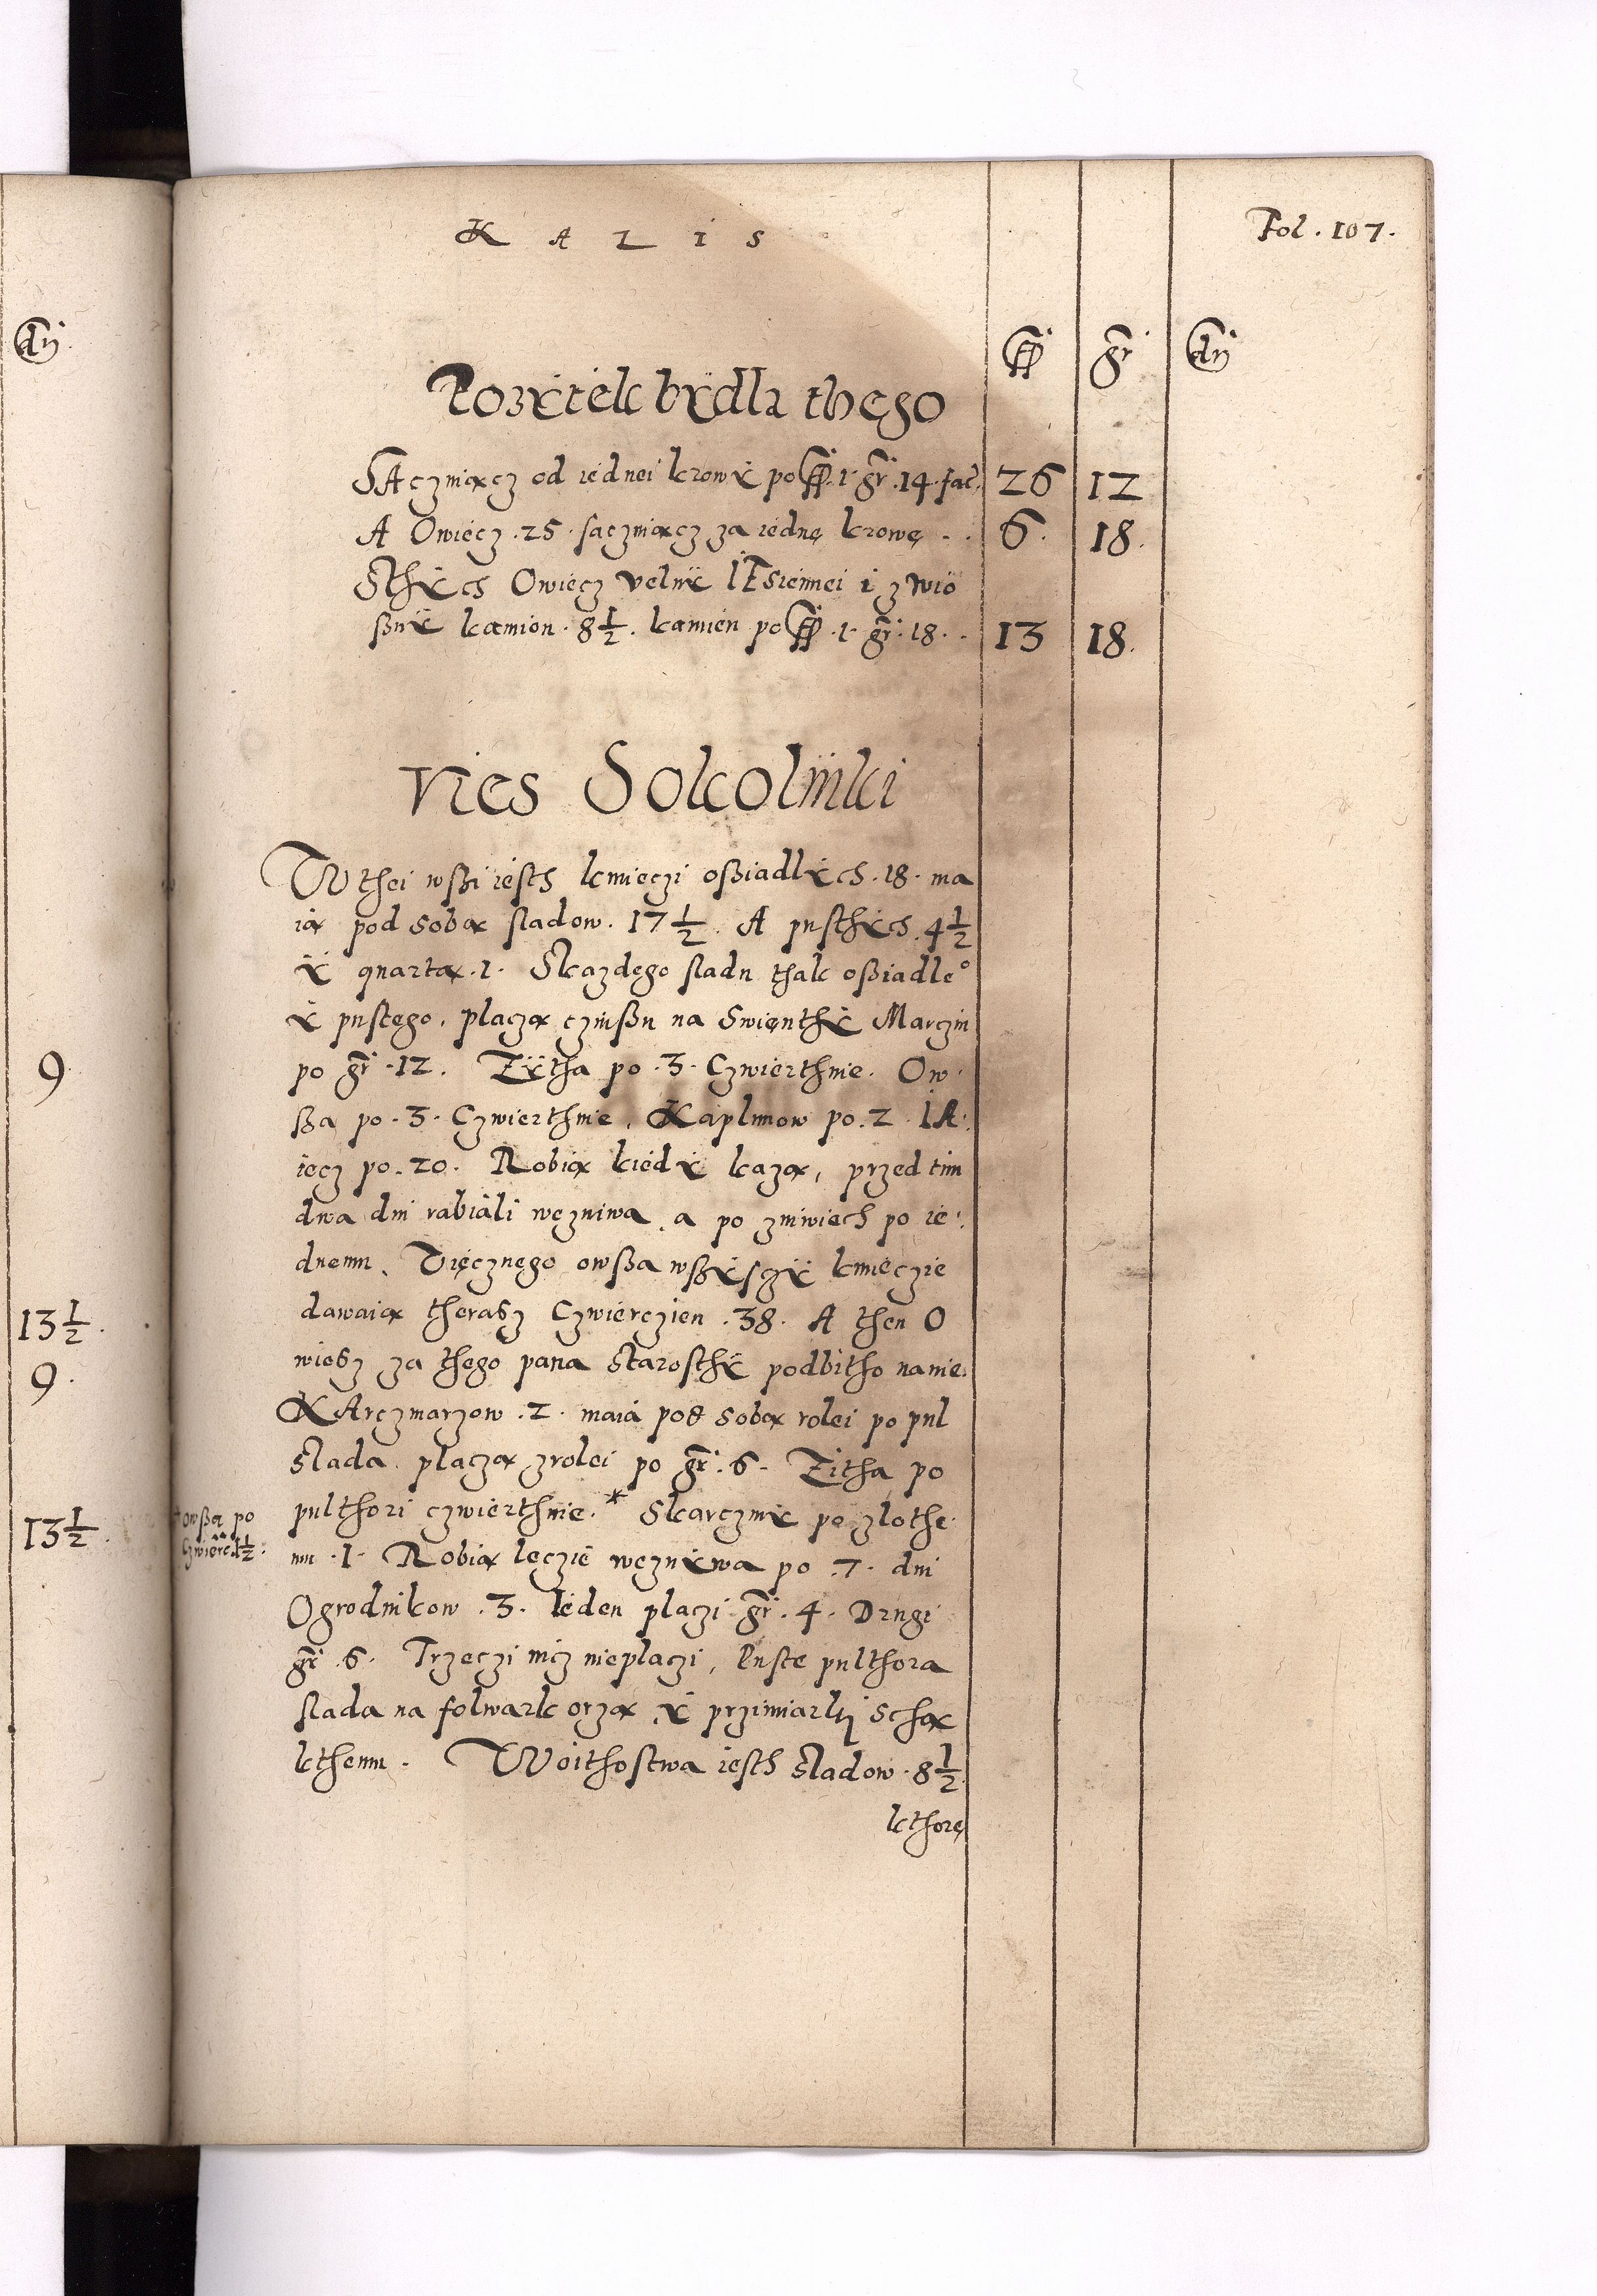 K A L I S
Fol. 107.
ff gr dń
Pozÿtek bÿdla thego
SAczuiącz od iednei krowÿ po ff. 1. gr. 14. fac. 26 12
A Owiecz .25. saczuiącz za iednę krowę . . 6. 18.
Sthÿch Owiecz velnÿ IEsiennei i zwio
ßnÿ kamion . 8 1/2 . kamien po ff .1. gr. 18. . 13 18.
Vies Sokolniki
W thei wßi iesth kmieczi oßiadlÿch .18. ma
ią pod sobą sladow. 17 1/2 . A pusthÿch . 4 1/2
ÿ quarta .1. Skazdego sladu thak oßiadle°
ÿ pustego, placzą czinßu na Swienthÿ Marczin
po gr .12. Zÿtha po .3. Czwierthnie. Ow
ßa po .3. Czwierthnie, Kaplunow po .2. IA.
iecz po .20. Robią kiedÿ kazą, przed tim
dwa dni rabiali wezniwa, a po zniwiech po ie.
dnemu. Viecznego owßa wßÿsczÿ kmieczie
dawaią therasz Czwierczien .38. A then O
wiesz za thego pana Starosthÿ podbitho na nie.
KArczmarzow .2. maia pod sobą rolei po pul
slada. placzą zrolei po gr .6. Zitha po
pulthori czwierthnie. * Skarczmÿ po zlothe
mu .1. Robią leczie weznÿwa po .7. dni
owßa po
Czwierc. 1 1/2 .
Ogrodnikow .3. Ieden placzi gr .4. Drugi
gr .6. Trzeczi nicz nieplaczi, Puste pulthora
slada na folwark orzą, ÿ przimiarki schą
kthemu. Woithostwa iesth sladow . 8 1/2
kthore
dń
9.
13 1/2 .
9.
13 1/2 .